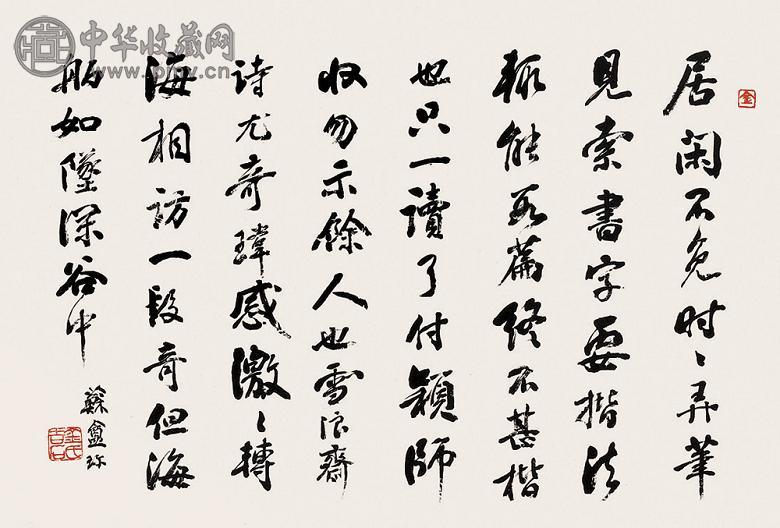 居闲不免时〻弄筆
見索書字要楷法
輒能數篇終不甚楷
也只一讀了付穎師
收勿示餘人也雪浪齋
诗尤奇瑋感激〻轉
海相訪一段奇但海
舶如墜深谷中
蘇盦
金
中华收藏网